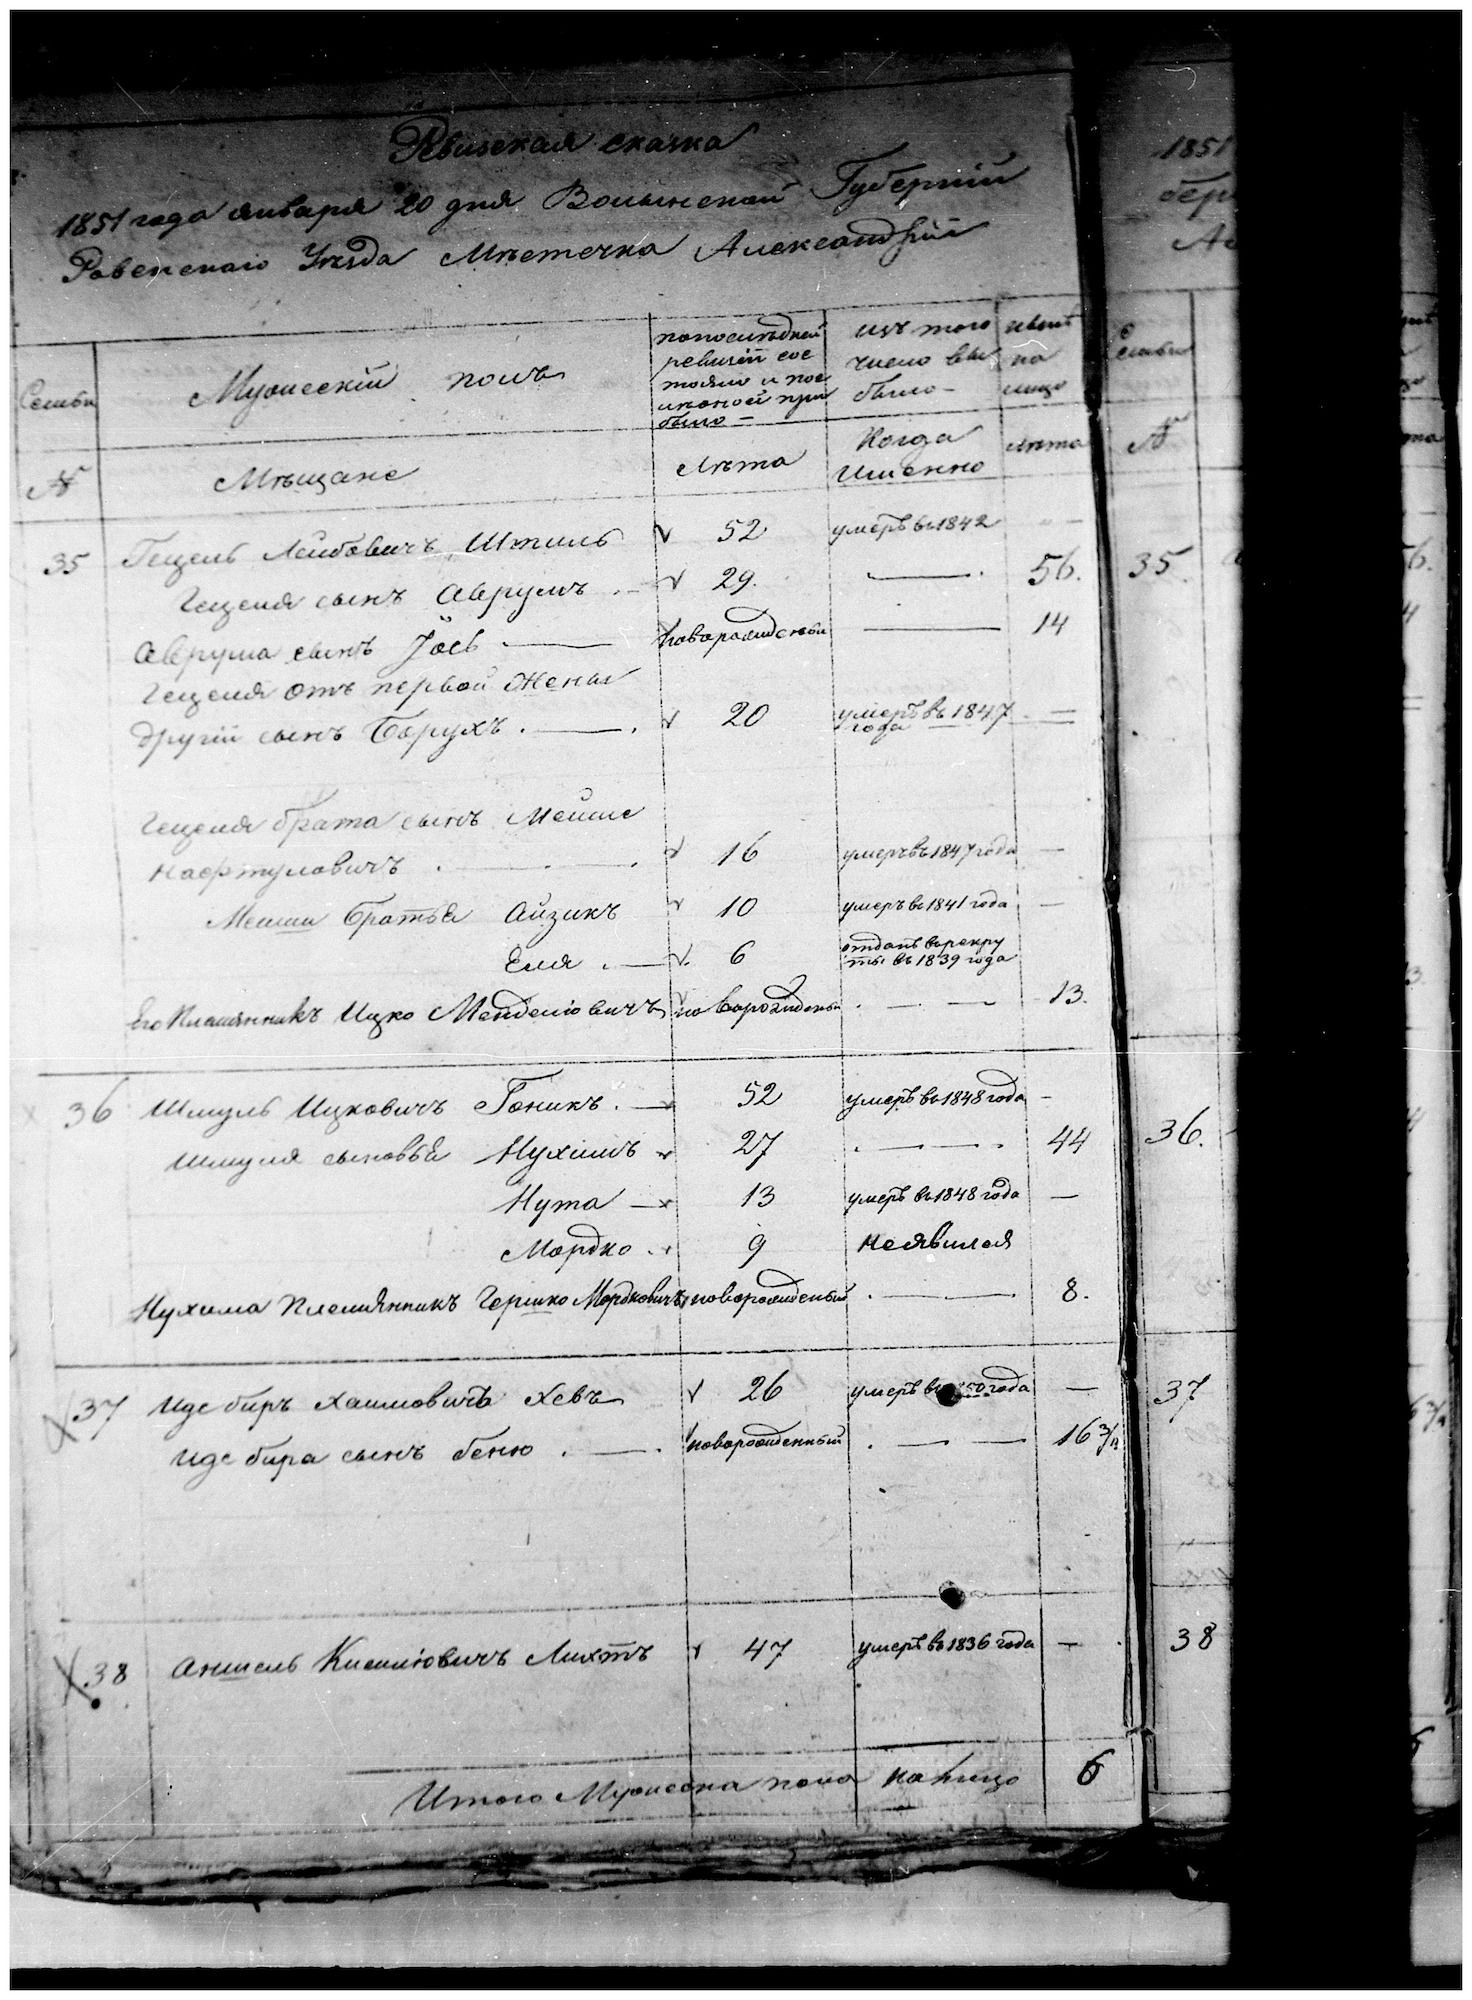 Ревизская сказка
1851 года января 20 дня Волынской Губернии
Ровенскаго Уезда Местечка Александрии
Семьи
Мужескій полъ
попоследней
ревизіи сос
тояло и пос
ле оной при
было —
изъ того
число вы
было —
ныне
на
лицо
№
Мѣщане
Лѣта
Когда
Именно
лѣта
35 Гецель Лейбовичъ Штиль 52 умеръ въ 1842 — 35.
Гецеля сынъ Аврумъ . — 29. — 56.
Аврума сынъ Іось — новорожденый — 14
Гецеля отъ первой Жены
другій сынъ Борухъ . — . 20 умеръ въ 1847 —
года
Гецеля брата сынъ Мейше
Нафтуловичъ . — . 16 умеръ въ 1847 года —
Мейши братья Айзикъ 10 умеръ въ 1841 года —
Еля . — 6 отданъ врекру
ты въ 1839 года
Его Племянникъ Ицко Менделіовичъ новорожденый . — — 13.
36 Шмуль Ицковичъ Гоникъ . — 52 умеръ въ 1848 года —
Шмуля сыновья Нухимъ 27 . — — . 44 36.
Нута — 13 умеръ въ 1848 года —
Мордко . 9 неявился
Нухима племянникъ Гершко Мордковичъ новорожденый . — 8.
37 Иде биръ Хаимовичъ Хевъ 26 умеръ въ 1850 года — 37
Иде бира сынъ Беню . — . новорожденный . — — 16 3/12
38 Аншель Кисилювичъ Лихтъ 47 умеръ въ 1836 года — 38
Итого Мужеска пола на лицо 6
1851
№